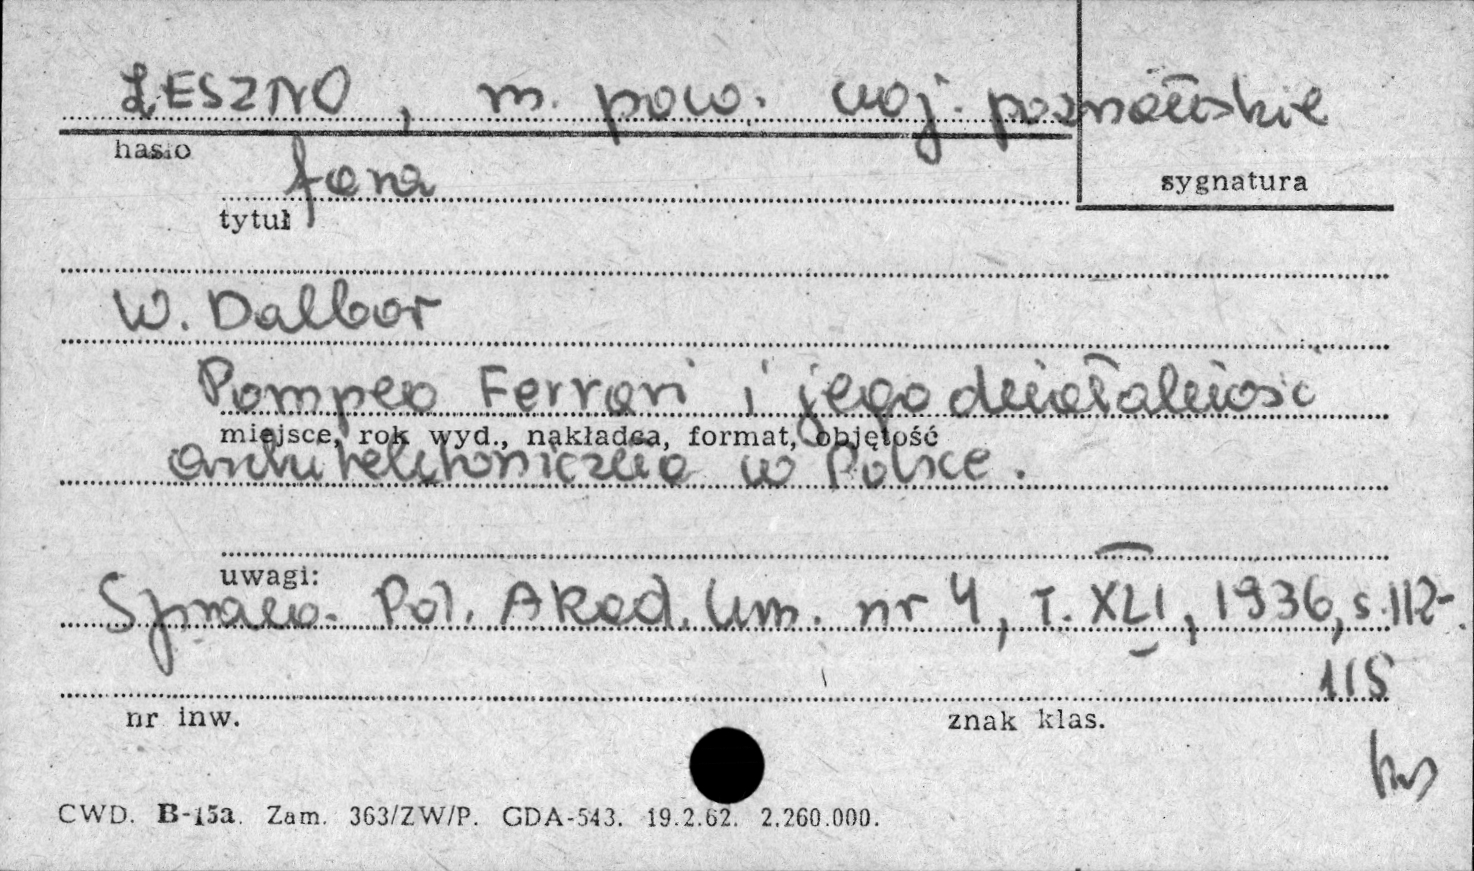 LESZNO, m. pow. woj. poznańskie
hasło
fara
sygnatura
tytuł
W. Dalbor
Pompeo Ferrari i jego działalność
miejsce, rok wyd., nakładca, format, objętość
architektoniczna w Polsce.
uwagi:
Spraw. Pol. Akad. Um. nr 4, T. XLI, 1936, s. 112-
115
nr inw.
znak klas.
CWD. B-15a. Zam. 363/ZW/P. GDA-543. 19.2.62. 2.260.000.